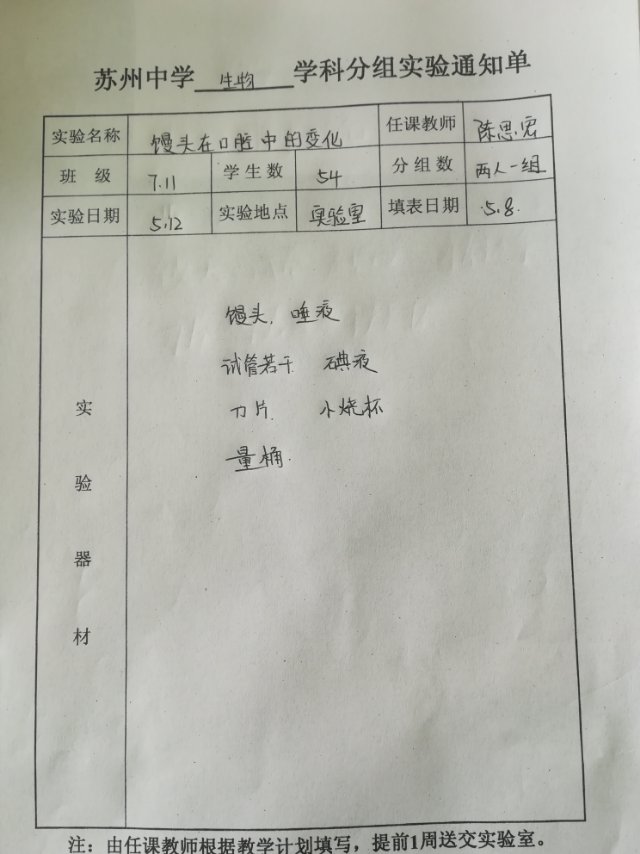 苏州中学 生物 学科分组实验通知单
实验名称 馒头在口腔中的变化 任课教师 陈思宏
班级 7.11 学生数 54 分组数 两人一组
实验日期 5.12 实验地点 实验室 填表日期 5.8.
实验器材
馒头, 唾液
试管若干 碘液
刀片 小烧杯
量桶.
注：由任课教师根据教学计划填写，提前1周送交实验室。